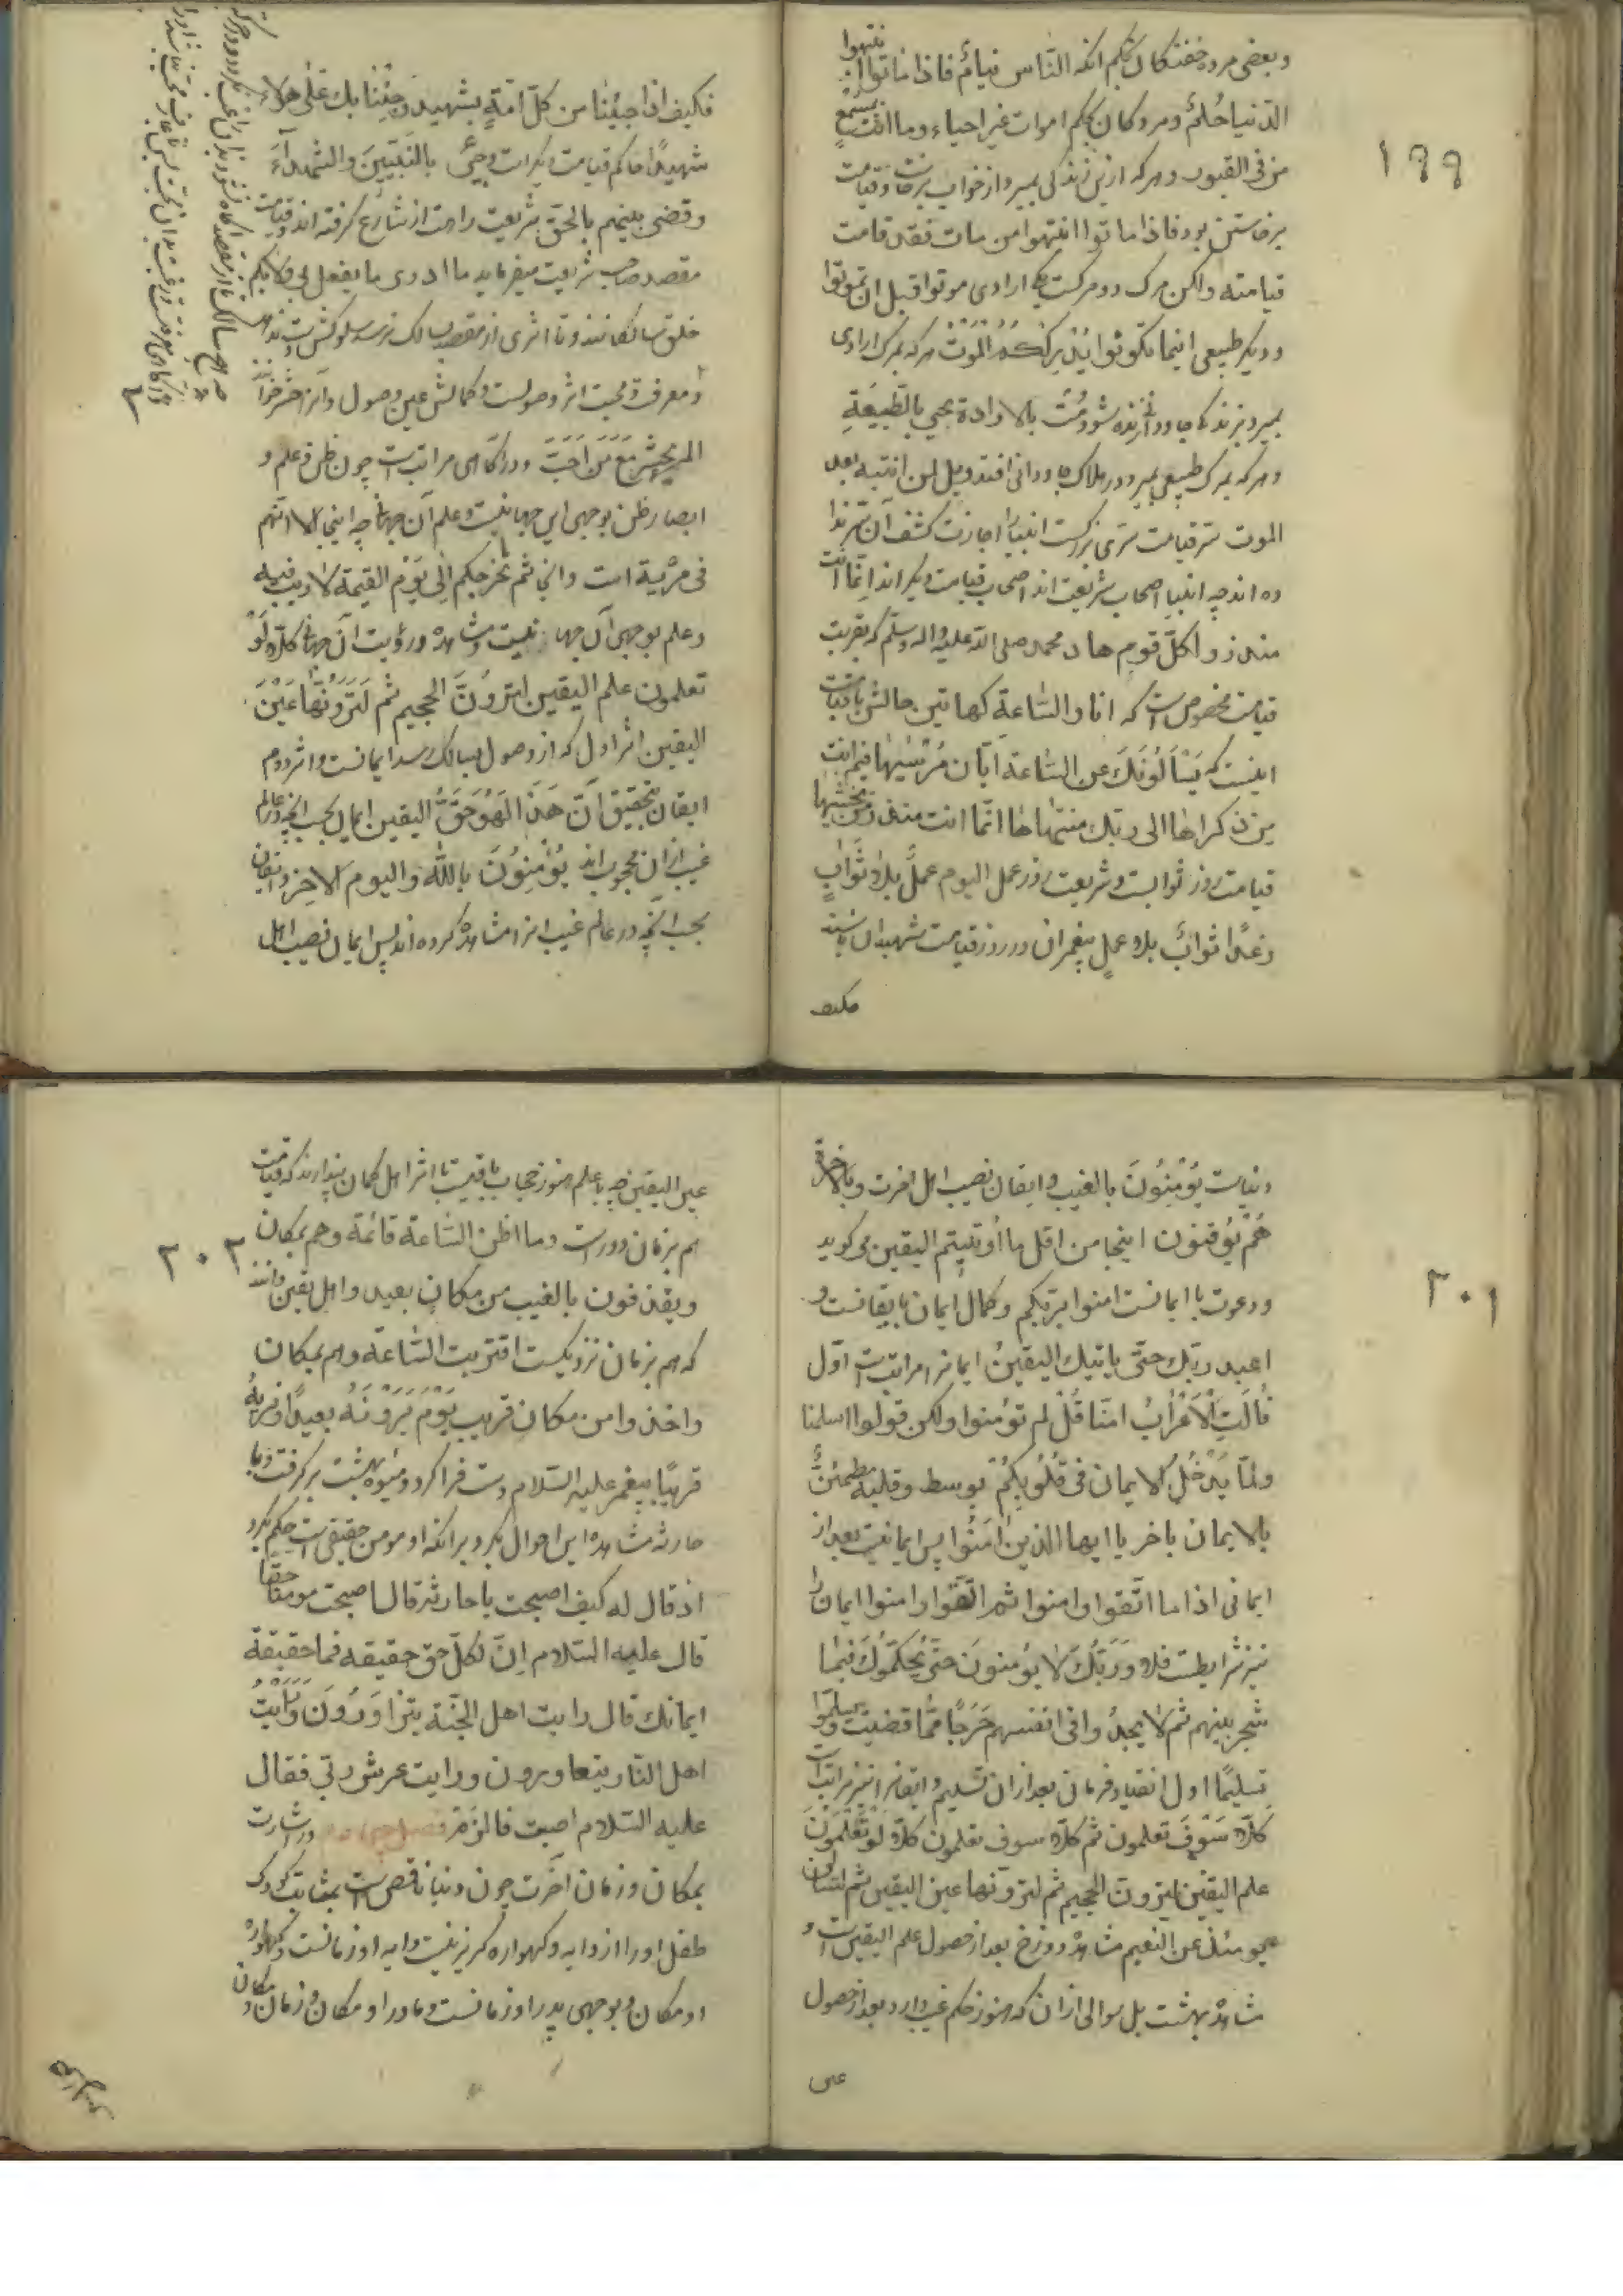 ۱۹۹
و بعضی مرده خفتکان بحکم انکه الناس نیام فاذا ماتوا انتبهوا
الدنیا حُلم و مردکان بحکم اموات غیر احیاء و ما انت بمسمع
من فی القبور و هرکه ازین زندکی بمیرد از خواب برخاست و قیامت
برخاستن بود فاذا ماتوا انتبهوا من مات فقد قامت
قیامته و لکن مرک دو مرکست یکی ارادی موتوا قبل ان تموتوا
و دیکر طبیعی اینما تکونوا یُدرککُمُ الموت هرکه بمرک ارادی
بمیرد بزندکی جاودانی زنده شود مُت بالارادة یحیی بالطبیعةِ
و هرکه بمرک طبیعی بمیرد در هلاک جاودانی افتد ویل لمن انتبه بعد
الموت سر قیامت سری بزرکست انبیا را اجازت کشف آن سر ندا
ده اند چه انبیا اصحاب شریعت اند اصحاب قیامت دیکر اند انما انت
منذر و لکلّ قومٍ هاد محمد صلی الله علیه و اله و سلم که بقربت
قیامت مخصوص است که انا و الساعة کهاتین حالش با قیامت
اینست که یَسْألُونَکَ عن الساعة ایّان مُرْسیٰها فیم انت
مِن ذکراها الی ربک منتهاها انّما انت منذر من یخشیها
قیامت روز ثوابست و شریعت روز عمل الیوم عملٌ بلا ثوابٍ
و غداً ثوابٌ بلا عملٍ پیغمبران در روز قیامت شهیدان باشند
فکیف
فکیف اذا جئنا من کلّ امّةٍ بشهید وَجِئْنا بک عَلیٰ هؤلاء
شهیداً حاکم قیامت دیکر است و جِئَ بالنَّبیّینَ و الشهداءَ
و قضی بینهم بالحق شریعت راهست از شارع کرفته اند و قیامت
مقصد صاحب شریعت میفرماید ما ادری ما یفعل بی و لا بکم
خلق سالکانند و تا اثری از مقصد بسالک نرسد سلوکش نتواند بود
و معرفت و محبت اثر وصولست و کمالش عین وصول و آنرا حشر خوانند
المرء یحشر مَعَ مَن اَحَبَّ و در آکاهی مراتب است چون ظن و علم و
ابصار ظن بوجهی این جهانیست و علم آن جهانی چه اینجا الا انّهم
فی مِرْیة است و انجا ثم یخرجکم اِلی یَوْم القیمة لا ریب فیه
و علم بوجهی آن جهانیست و مشاهده و رؤیت آن جهانی کلّا لَوْ
تعلمون علم الیقین لترَوُنَّ الجحیم ثم لَتَرَوُنَّها عَیْنَ
الیقین اثر اول که از وصول بسالک رسد ایمانست و اثر دوم
ایقان بتحقیق انّ هَذا لَهُوَ حَقُّ الیقین ایمان بحسب انچه در عالم
غیب ازان محجوب اند یُؤمِنُونَ بالله و الیوم الاخر و ایقان
بحسب انچه در عالم غیب انرا مشاهده کرده اند پس ایمان نصیب اهل
۳۰۱
دنیاست یُؤْمِنُونَ بالغیب و ایقان نصیب اهل اخرت و بالاخرة
هُمْ یُوقنون اینجا من اقل ما أوتیتم الیقین می کوید
و دعوت با ایمانست امنوا بربکم و کمال ایمان بایقانست و
اعبد ربک حتّی یاتیک الیقینُ ایمانرا مراتب است اوّل
قالَتِ الاَعْرابُ امنّا قُلْ لم تؤمنوا و لکن قولوا اسلمنا
و لمّا یَدْخُلِ الایمان فی قلُوبِکُمْ بوسط و قلبه مطمئنٌّ
بالایمان باخر یا ایها الذین امَنُوا پس ایمانیست بعد از
ایمانی اذا ما اتّقوا و امنوا ثم اتّقوا و امنوا ایمان را
نیز شرایط است فلا وَ رَبِّکَ لا یؤمنونَ حتّی یُحکّمُوکَ فیما
شجر بینهم ثم لا یجدُوا فی انفسهم حَرَجاً ممّا قضیت و یسلّموا
تسلیماً اول انقیاد فرمان بعد ازان تسلیم و ایقانرا نیز مراتب است
کلّا سَوْفَ تعلمون ثم کلّا سوف تعلمون کلّا لو تعْلمُونَ
علم الیقین لترونّ الجحیم ثم لترونّها عین الیقین ثم لتسئلن
یومئذ عن النعیم مشاهده دوزخ بعد از حصول علم الیقین است و
مشاهده بهشت بل سوالی ازان که هنوز حکم غیب دارد بعد از حصول
عین
۳۰۲
عین الیقین چه با علم هنوز حجاب باقیست تا اثر اهل کمان پندارند که قیامت
هم بزمان دور است و ما اظن الساعة قائمة و هم بمکان
و یقذفون بالغیب من مکان بعید و اهل یقین دانند
که هم بزمان نزدیکست اقتربت الساعة و هم بمکان
و اخذوا من مکان قریب یَوْم یَرَوْنَهُ بعیداً و نریهُ
قریباً پیغمبر علیه السلام دست فرا کرد و میوه بهشت بر کرفت و با
حارثه مشاهده این احوال بکرد بر انکه او مومن حقیقی است حکم بکرد
اذ قال له کیف اصبحت یا حارثه قال اصبحت مومناً حقاً
قال علیه السلام اِنّ لکلّ حق حقیقه فما حقیقة
ایمانک قال رایت اهل الجنة یتزاوَرُونَ وَ رَأیْتُ
اهل النار یتعاورون و رایت عرش ربی فقال
علیه السلام اصبت فالزم فصل در اشارت
بمکان و زمان آخرت چون دنیا ناقص است بمثابت کودک
طفل او را از دایه و کهواره کریز نیست دایه او زمانست و کهواره
او مکان و بوجهی پدر او زمانست و مادر او مکان و زمان و مکان